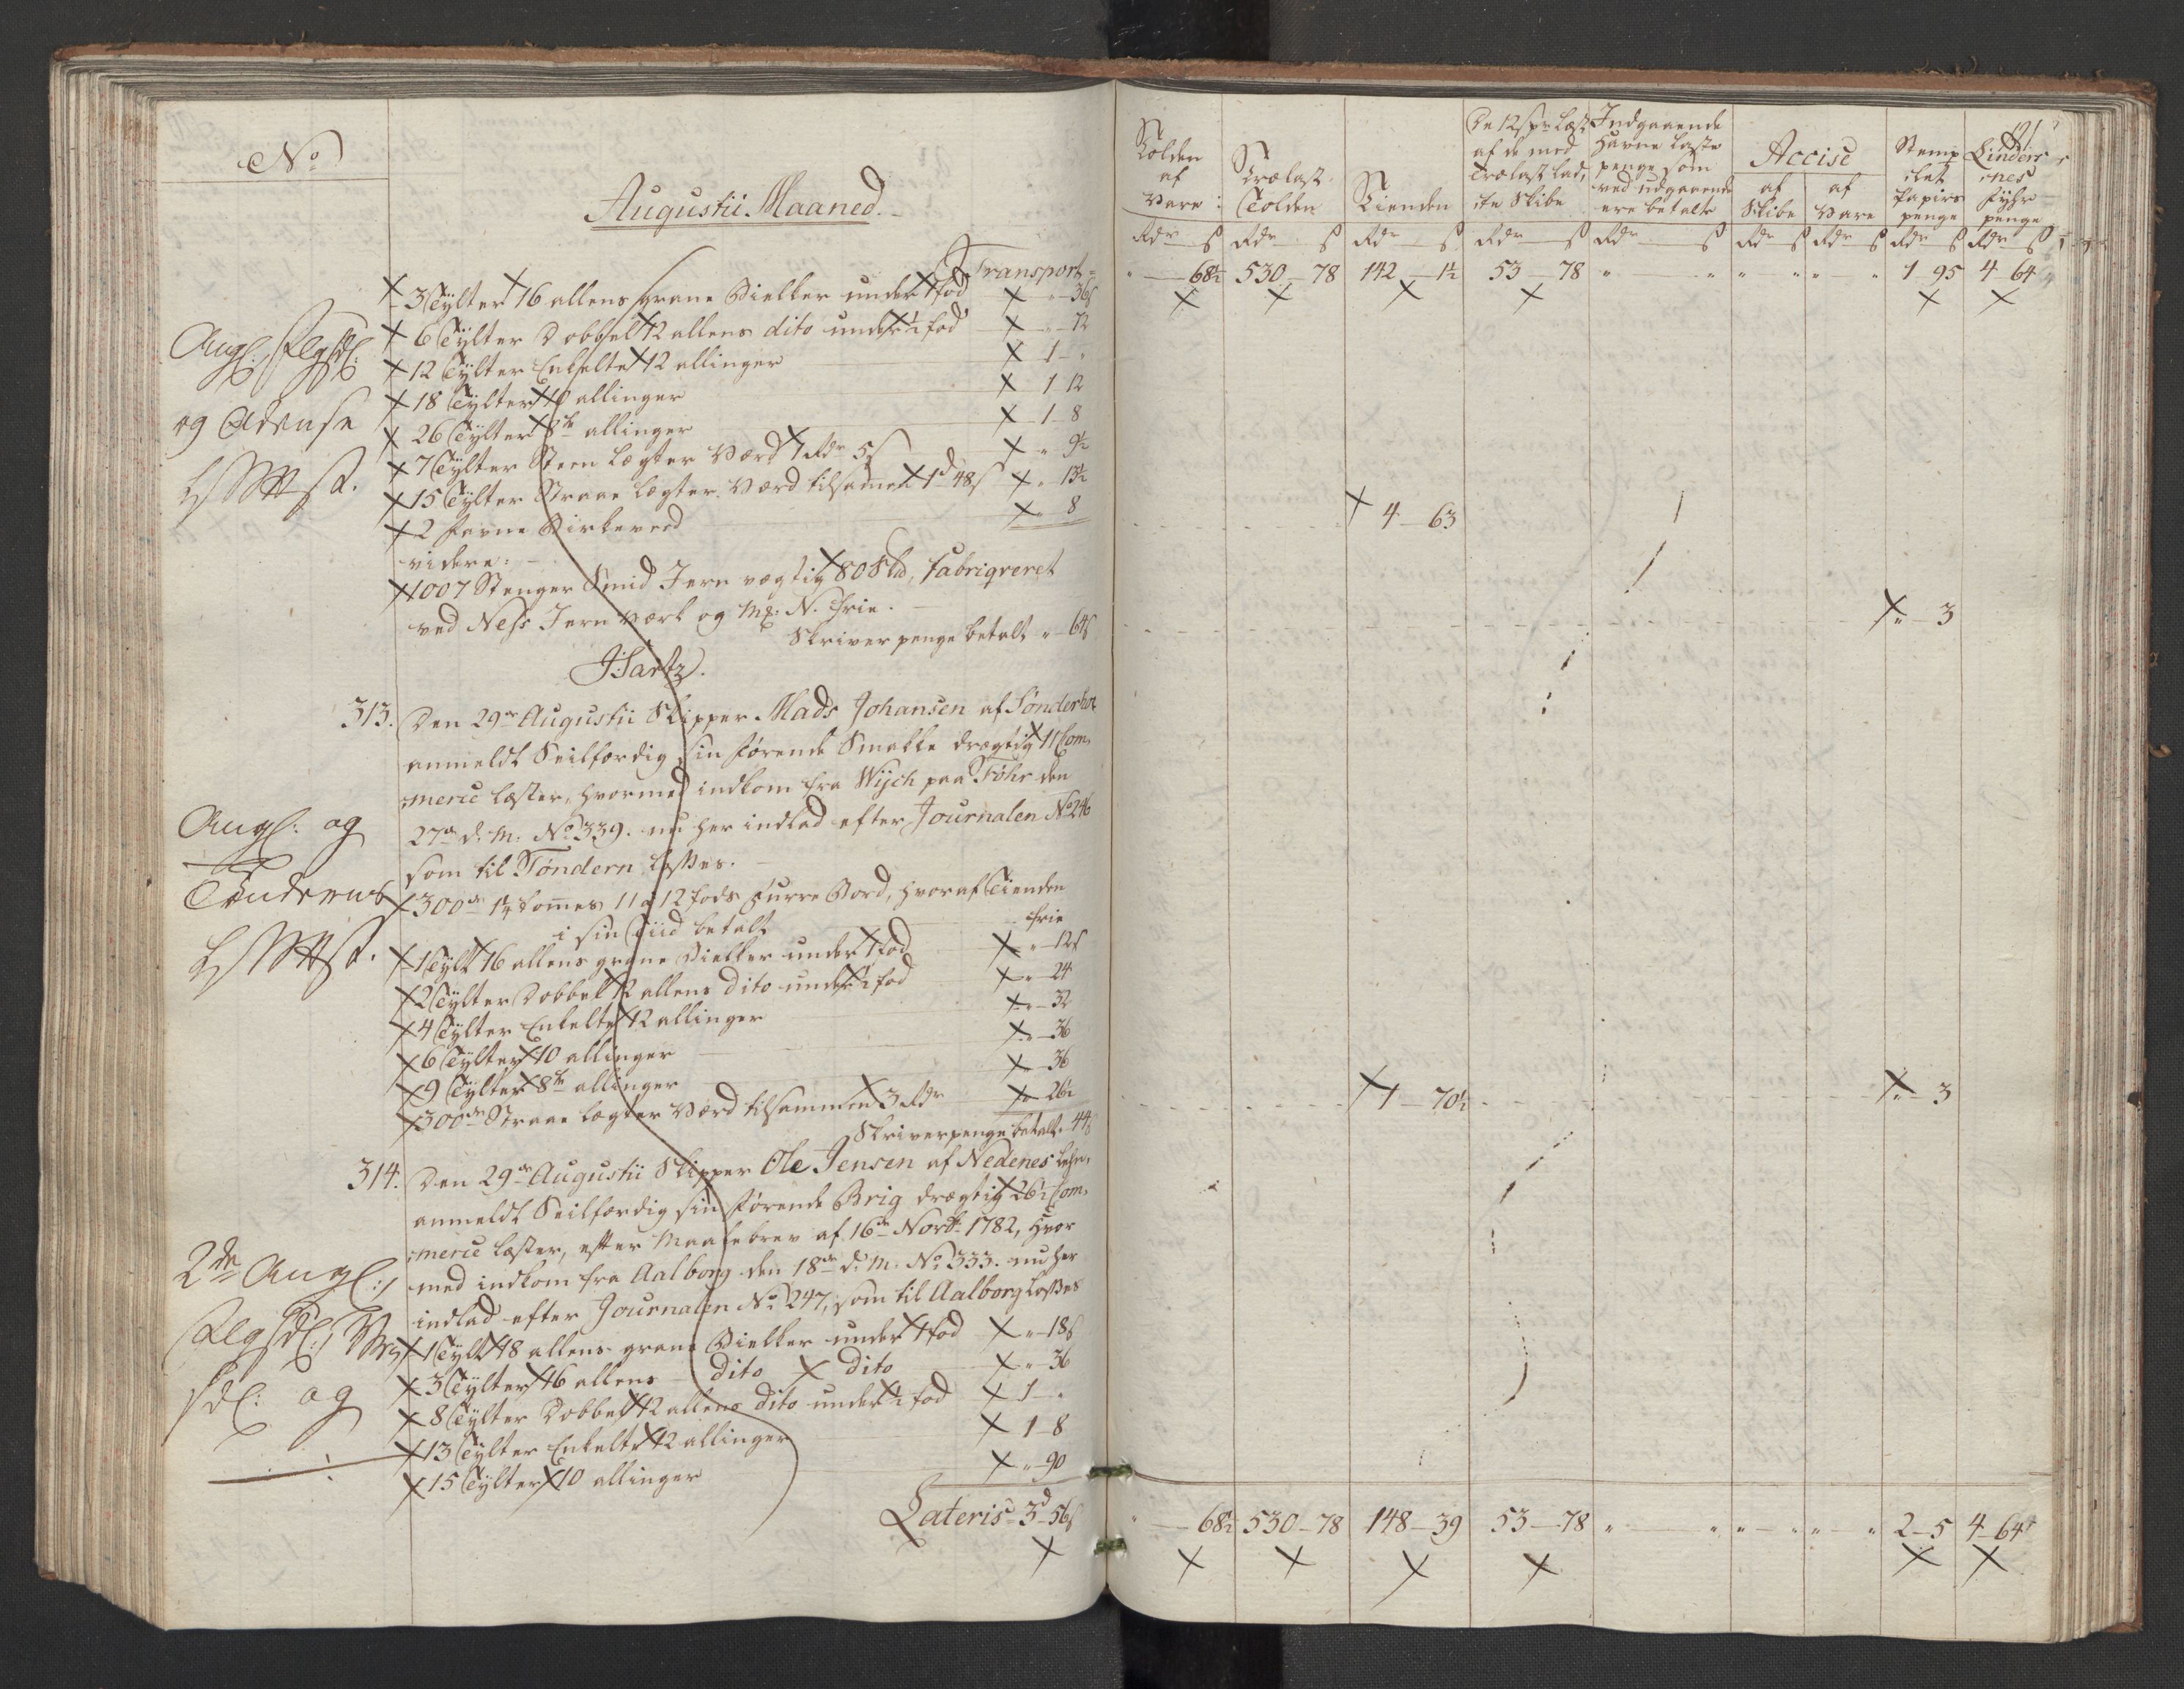 No
Augustii Maaned.
Transport=
3 Tylter 16 allens grane Bielker under 1 fod " 36 s
6 Tylter Dobbelt 12 allens dito under ½ fod " 72
12 Tylter Enkelte 12 allinger 1 - "
18 Tylter 10 allinger 1 12
26 Tylter 8te allinger 1 - 8
7 Tylter Steen Lægter Værd 1 Rdr 5 s " 9½
15 Tylter Straae Lægter. Værd tilsamen 1 d 48 s " 13½
2 favne Birkeved " 8
videre:
1007 Stenger Smid Jern vægtig 80 S℔, fabriqveret
ved Ness Jern værk og Mx: N. frie.
Skriver penge betalt " 64 s
JSartz.
Angl: Flgsd:
og Odense
313. Den 29de Augustii Skipper Mads Johansen af Sønderhoe
anmeldt Seilfærdig sin førende Smakke drægtig 11 Com,
merce læster, hvormed indkom fra Wych paa Föhr den
27de d. M. No 339. nu her indlad efter Journalen No 246
som til Töndern losses.
300de 1¼ tomes 11 a 12 fods Furre Bord, hvoraf Tienden
i sin Tiid betalt frie
1 Tylt 16 allens grane Bielker under 1 fod " 12 s
2 Tylter Dobbelt 12 allens dito under ½ fod " 24
4 Tylter Enkelte 12 allinger " 32
6 Tylter 10 allinger " 36
9 Tylter 8te allinger " 36
300de Straae lægter Værd tilsammen 3 Rdr " 26½
Skriverpenge betalt " 44 s
Angl: og
Töndernes
314. Den 29de Augustii Skipper Ole Jensen af Nedenes Lehn,
anmeldt Seilfærdig sin førende Brig drægtig 26½ Com,
merce læster, efter Maalebrev af 16de Novbr 1782, hvor
med indkom fra Aalborg den 18de d. M. No 333. nu her
indlad efter Journalen No 247, som til Aalborg losses
1 Tylt 18 allens grane Bielker under 1 fod " 18 s
3 Tylter 16 allens dito dito " 36
8 Tylter Dobbelt 12 allens dito under ½ fod 1 - "
13 Tylter Enkelte 12 allinger 1 - 8
15 Tylter 10 allinger " 90
Lateris 3 d 56 s
2de Angl:,
Flgsd:,
sd: og
121
Tolden af Vare:
Trælast Tolden
Tienden
De 12 s pr læst af de med Trælast lad, te Skibe
Indgaaende Havne Laste penge som ved udgaaende ere betalte
Accise
af Skibe
af Vare
Stemp let Papirs penge
Linders nes Fyhr penge
Rdr s Rdr s Rdr s Rdr s Rdr s Rdr s Rdr s Rdr s Rdr s
" 68½ 530 - 78 142 - 1½ 53 - 78 " " " " " " 1 95 4 64
4 - 63
" - 3
1 - 70½ " - 3
" 68½ 530 - 78 148 - 39 53 - 78 " " " " " " 2 - 5 4 - 64